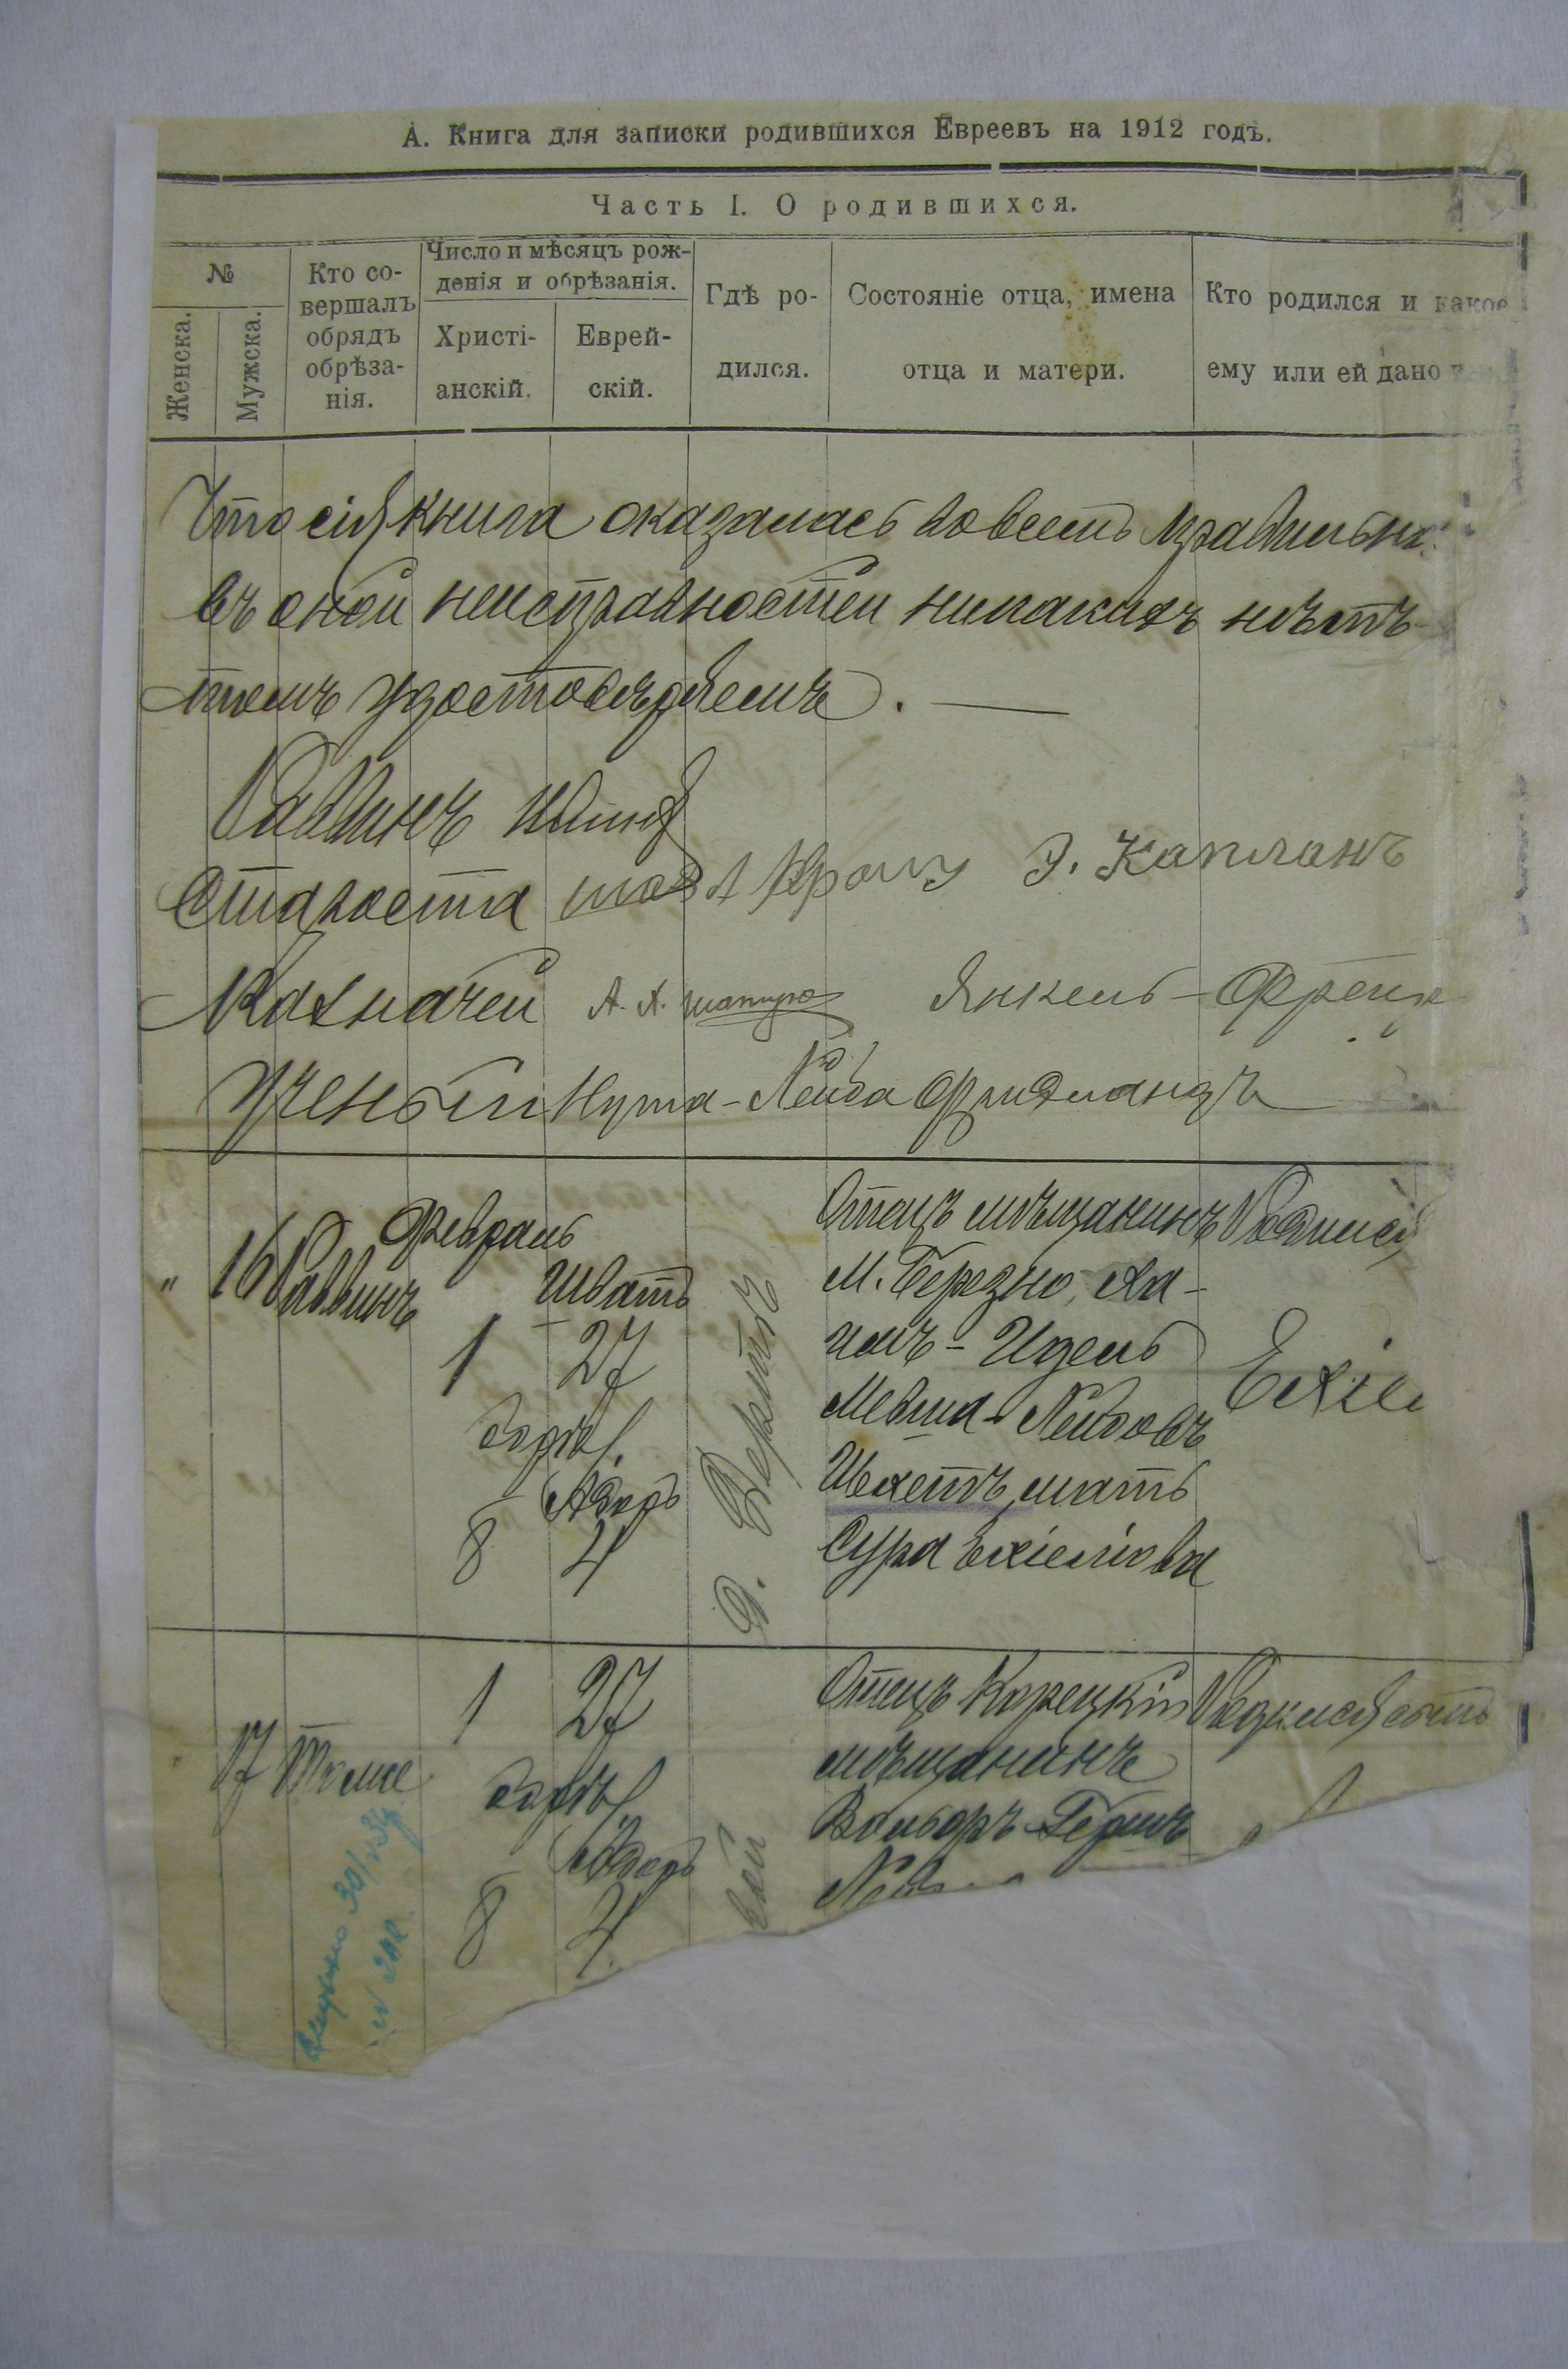 А. Книга для записки родившихся Евреевъ на 1912 годъ.
Часть I. О родившихся.
№
Женска.
Мужска.
Кто со-
вершалъ
обрядъ
обрѣза-
нія.
Число и мѣсяцъ рож-
денія и обрѣзанія.
Христі-
анскій.
Еврей-
скій.
Гдѣ ро-
дился.
Состояніе отца, имена
отца и матери.
Кто родился и какое
ему или ей дано
Что сія книга оказалась во всемъ правильна
въ оной неисправностей никакихъ нѣтъ
томъ удостовѣряемъ.
Раввинъ
Староста Э. Капланъ
Казначей А. Х. Шапиро Янкель-
Ученый Нута-Лейба Фридландъ
"
16
Раввинъ
Февраль
1
8
Шватъ
27
Адаръ
4
Отецъ мѣщанинъ
М. Березно, Ха-
имъ-Идель
Мевша-Лейбовъ
Шехетъ, мать
Сура Ехіелова
Родился
Ехіе
17
Тоже
1
8
27
Адаръ
4
Отецъ Корецкій
мѣщанинъ
Вольфъ-Гершъ
Родился сынъ